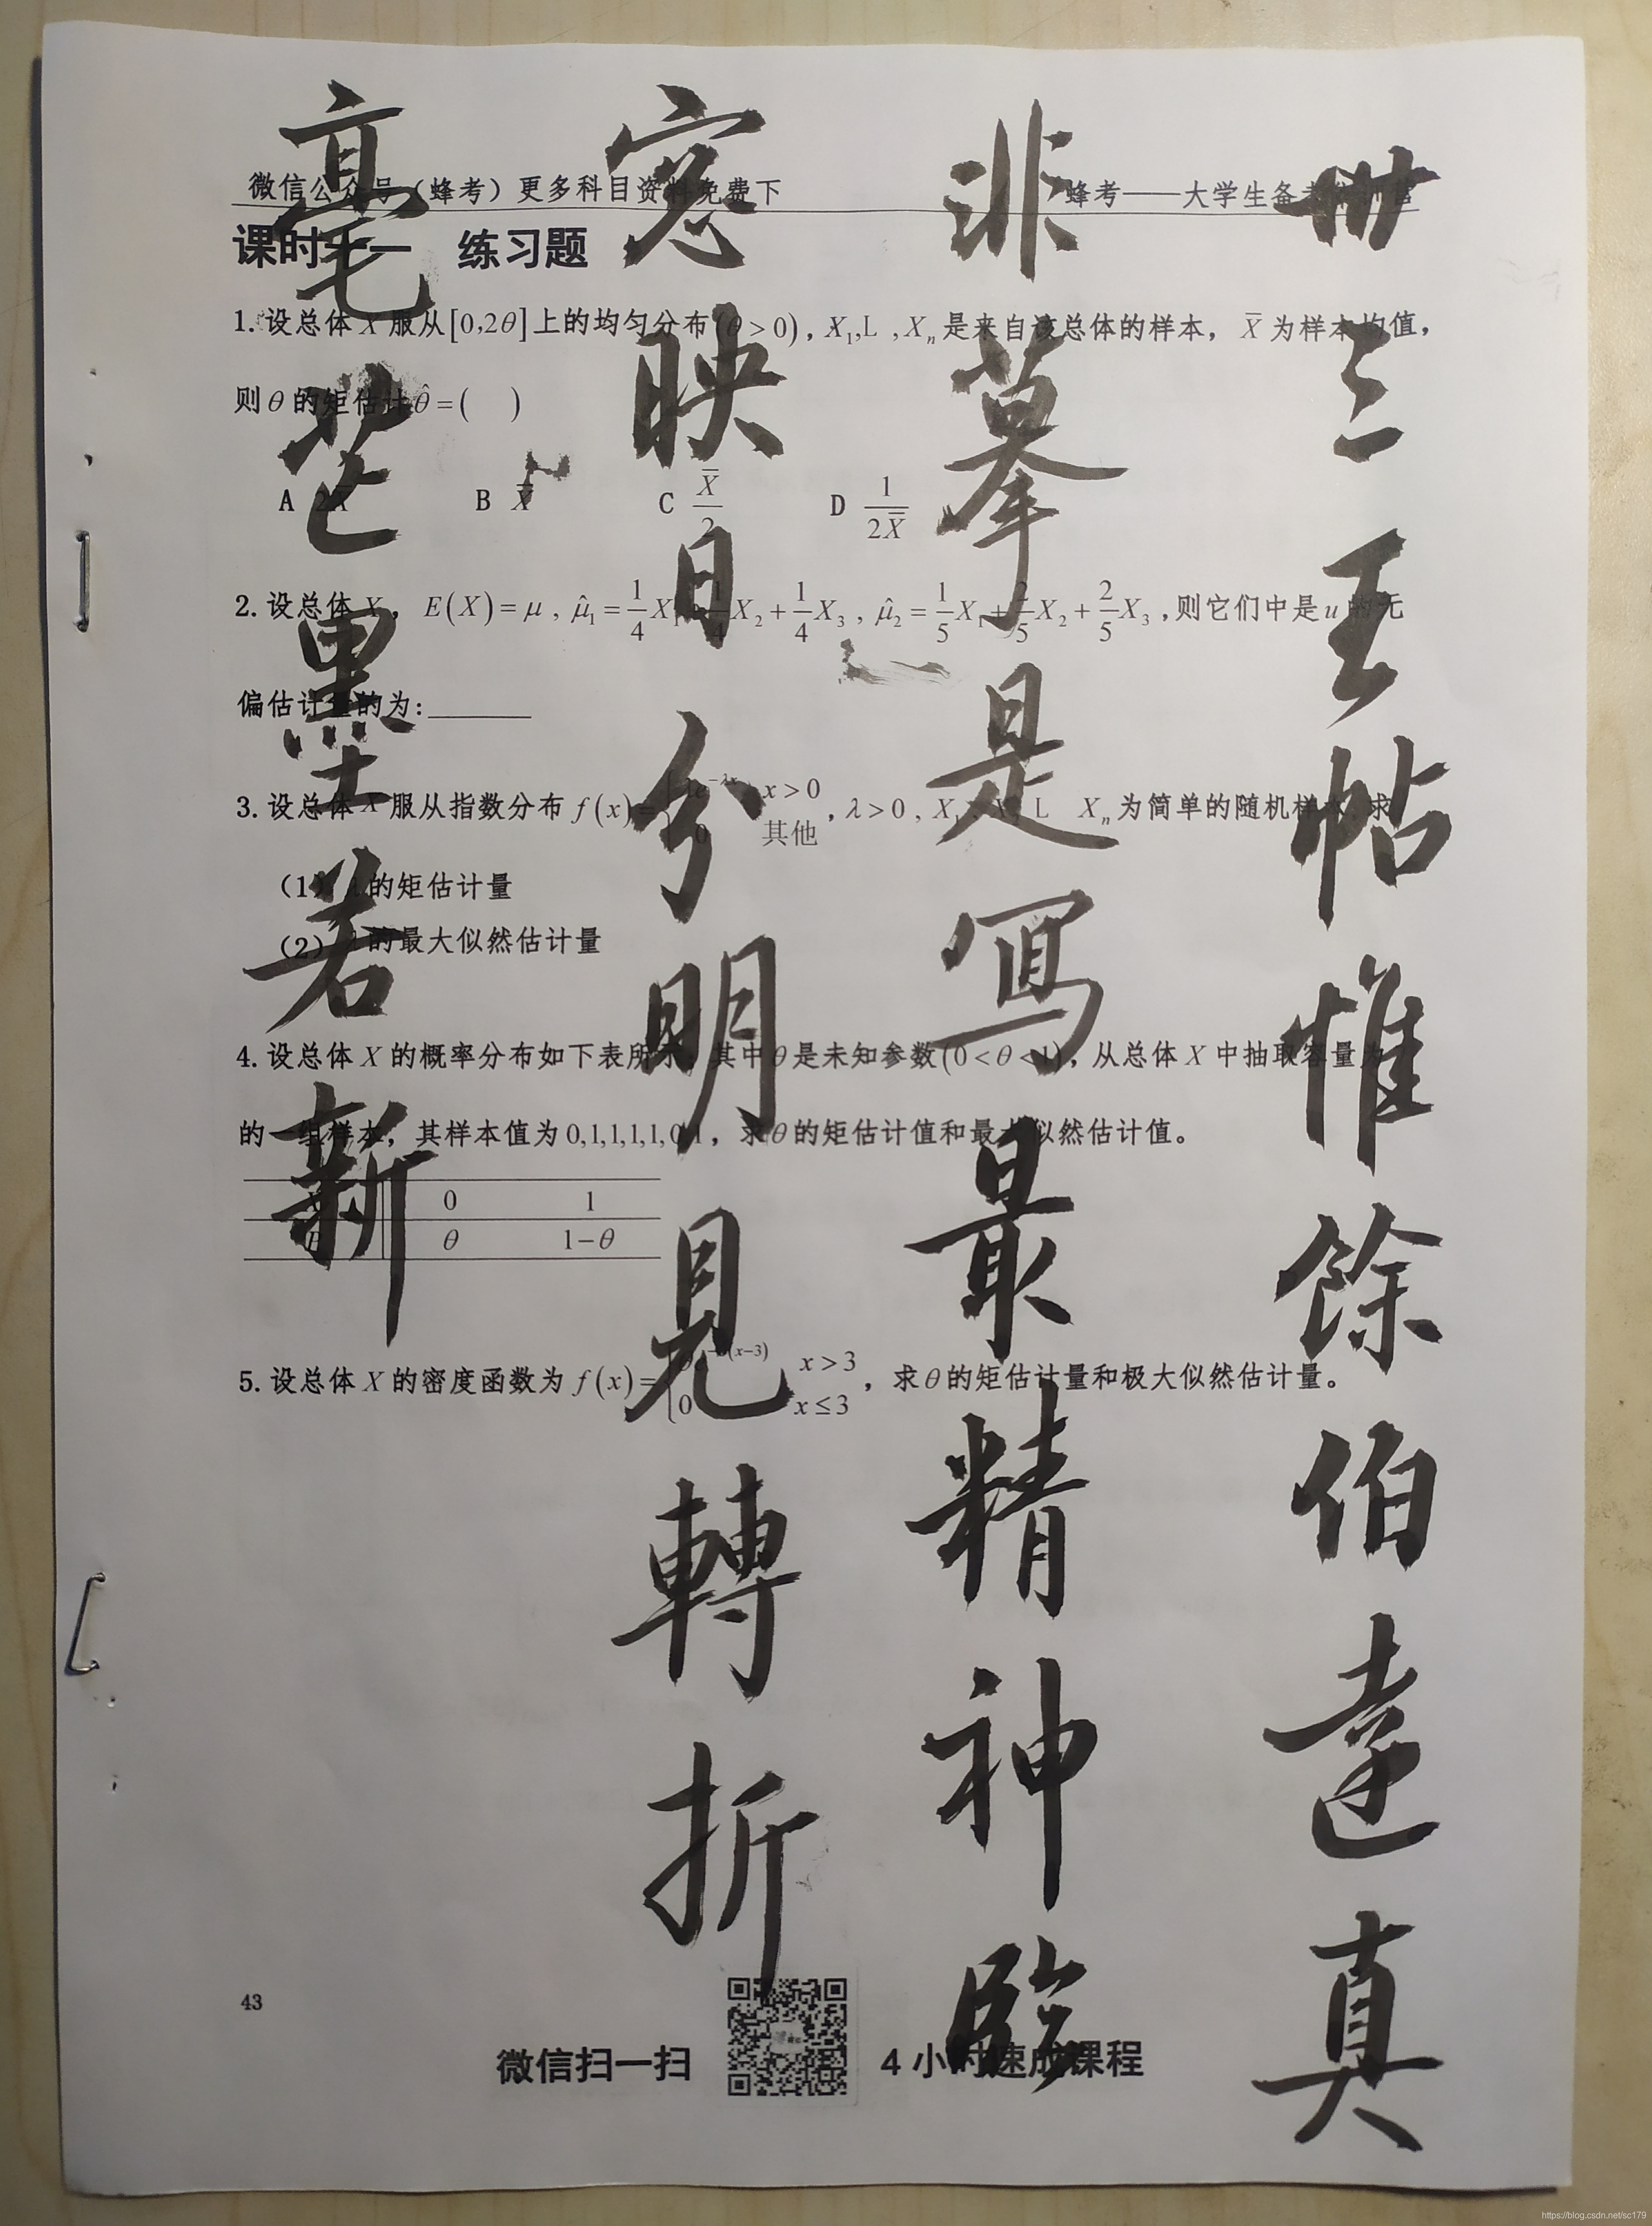 微信公众号（蜂考）更多科目资料免费下
蜂考——大学生备考
课时十一 练习题
1. 设总体 X 服从[0,2θ]上的均匀分布(θ > 0), X₁,L ,Xₙ 是来自该总体的样本, X̄ 为样本均值,
则θ的矩估计θ̂ = ( )
A 2X̄ B X̄ C X̄/2 D 1/(2X̄)
2. 设总体 X, E(X) = μ, μ̂₁ = 1/4 X₁ + 1/4 X₂ + 1/4 X₃, μ̂₂ = 1/5 X₁ + 2/5 X₂ + 2/5 X₃ ,则它们中是u的无
偏估计量的为:______
3. 设总体 X 服从指数分布 f(x) = x > 0
0 其他 , λ > 0 , X₁ L Xₙ 为简单的随机样本,求
（1） 的矩估计量
（2） 的最大似然估计量
4. 设总体 X 的概率分布如下表所示, 其中θ是未知参数(0 < θ < 1), 从总体 X 中抽取容量为
的一组样本, 其样本值为 0,1,1,1,1,0,1, 求θ的矩估计值和最大似然估计值。
X 0 1
P θ 1−θ
5. 设总体 X 的密度函数为 f(x) = (x−3) x > 3
0 x ≤ 3 , 求θ的矩估计量和极大似然估计量。
43
微信扫一扫
4 小时速成课程
三王帖惟餘伯遠真
非摹是寫最精神臨
窓映日分明見轉折
毫芒墨若新
https://blog.csdn.net/sc179